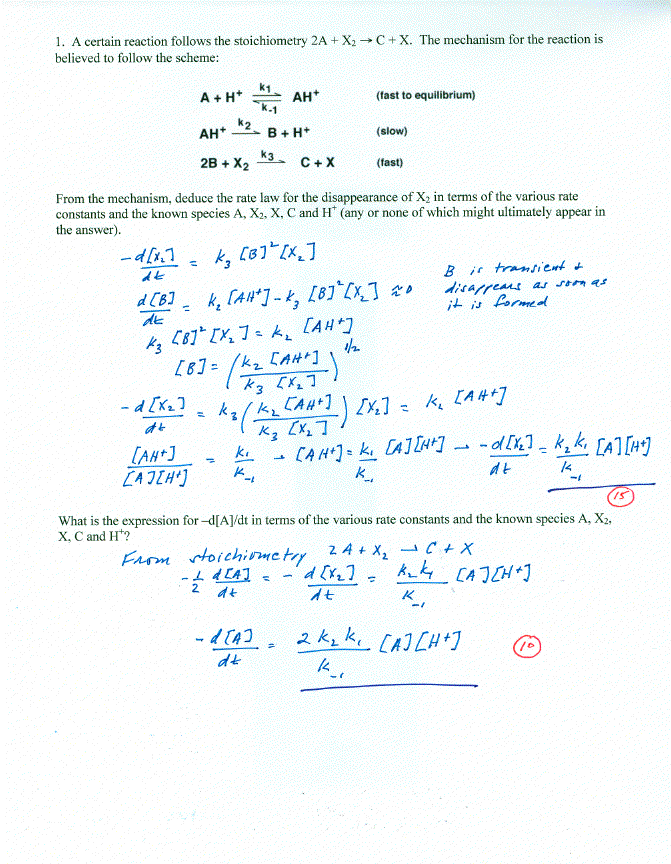 1. A certain reaction follows the stoichiometry 2A + X₂ → C + X. The mechanism for the reaction is
believed to follow the scheme:
A + H⁺ k₁ ⇌ k₋₁ AH⁺ (fast to equilibrium)
AH⁺ k₂ → B + H⁺ (slow)
2B + X₂ k₃ → C + X (fast)
From the mechanism, deduce the rate law for the disappearance of X₂ in terms of the various rate
constants and the known species A, X₂, X, C and H⁺ (any or none of which might ultimately appear in
the answer).
-d[X₂]/dt = k₃ [B]² [X₂]
B is transient &
disappears as soon as
it is formed
d[B]/dt = k₂ [AH⁺] - k₃ [B]² [X₂] ≈ 0
k₃ [B]² [X₂] = k₂ [AH⁺]
[B] = (k₂ [AH⁺] / k₃ [X₂])^1/2
-d[X₂]/dt = k₃ (k₂ [AH⁺] / k₃ [X₂]) [X₂] = k₂ [AH⁺]
[AH⁺]/[A][H⁺] = k₁/k₋₁ → [AH⁺] = k₁/k₋₁ [A][H⁺] → -d[X₂]/dt = k₂k₁/k₋₁ [A][H⁺]
15
What is the expression for –d[A]/dt in terms of the various rate constants and the known species A, X₂,
X, C and H⁺?
From stoichiometry 2A + X₂ → C + X
-1/2 d[A]/dt = - d[X₂]/dt = k₂k₁/k₋₁ [A][H⁺]
-d[A]/dt = 2k₂k₁/k₋₁ [A][H⁺]
10